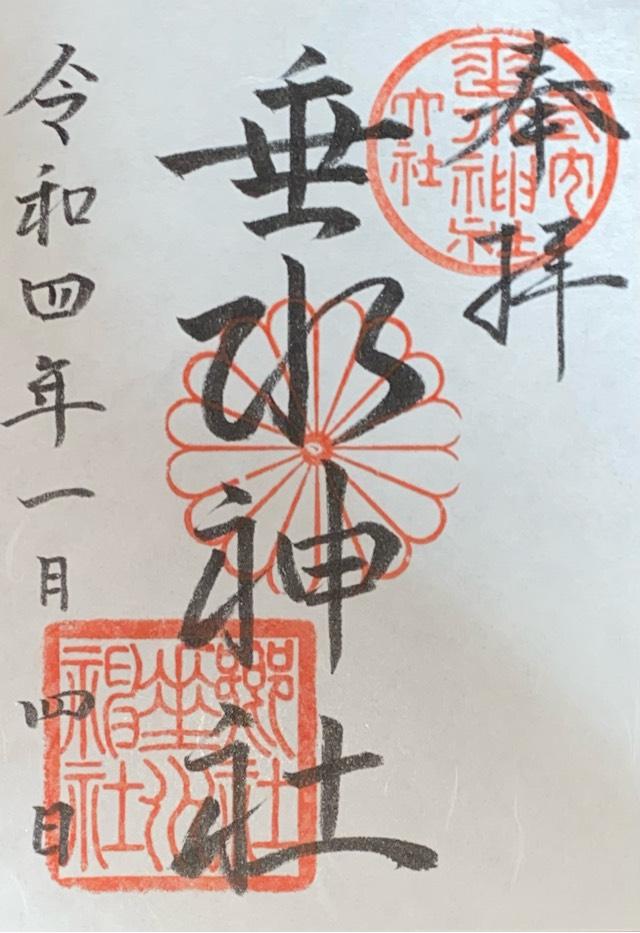 奉拝
式内
垂水神社
大社
垂水神社
郷社
垂水
神社
令和四年一月四日